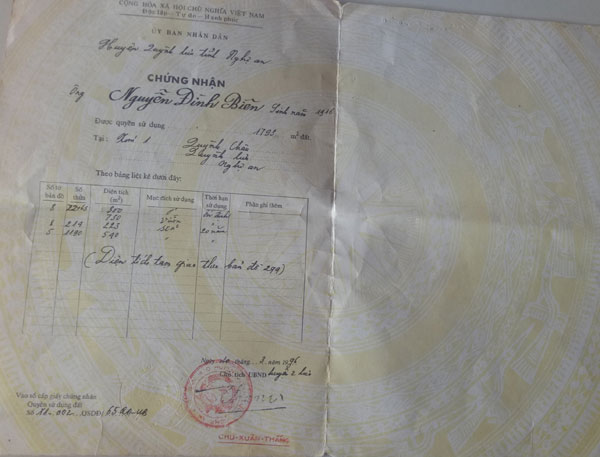 CỘNG HÒA XÃ HỘI CHỦ NGHĨA VIỆT NAM
Độc lập - Tự do - Hạnh phúc
ỦY BAN NHÂN DÂN
Huyện Quỳnh lưu tỉnh Nghệ an
CHỨNG NHẬN
Ông Nguyễn Đình Biên Sinh năm
Được quyền sử dụng 1793 m² đất
Tại: Xóm 1 Quỳnh Châu
Quỳnh lưu
Nghệ an
Theo bảng liệt kê dưới đây:
Số tờ bản đồ Số thửa Diện tích (m²) Mục đích sử dụng Thời hạn sử dụng Phần ghi thêm
8 300
730 Vườn "
6 214 223 20 năm
5 1180 540 "
(Diện tích tạm giao theo bản đồ 299)
Ngày tháng 2 năm 1996
Chủ tịch UBND huyện Q lưu
Vào sổ cấp giấy chứng nhận
Quyền sử dụng đất
Số QSDĐ/
CHU-XUÂN-THĂNG